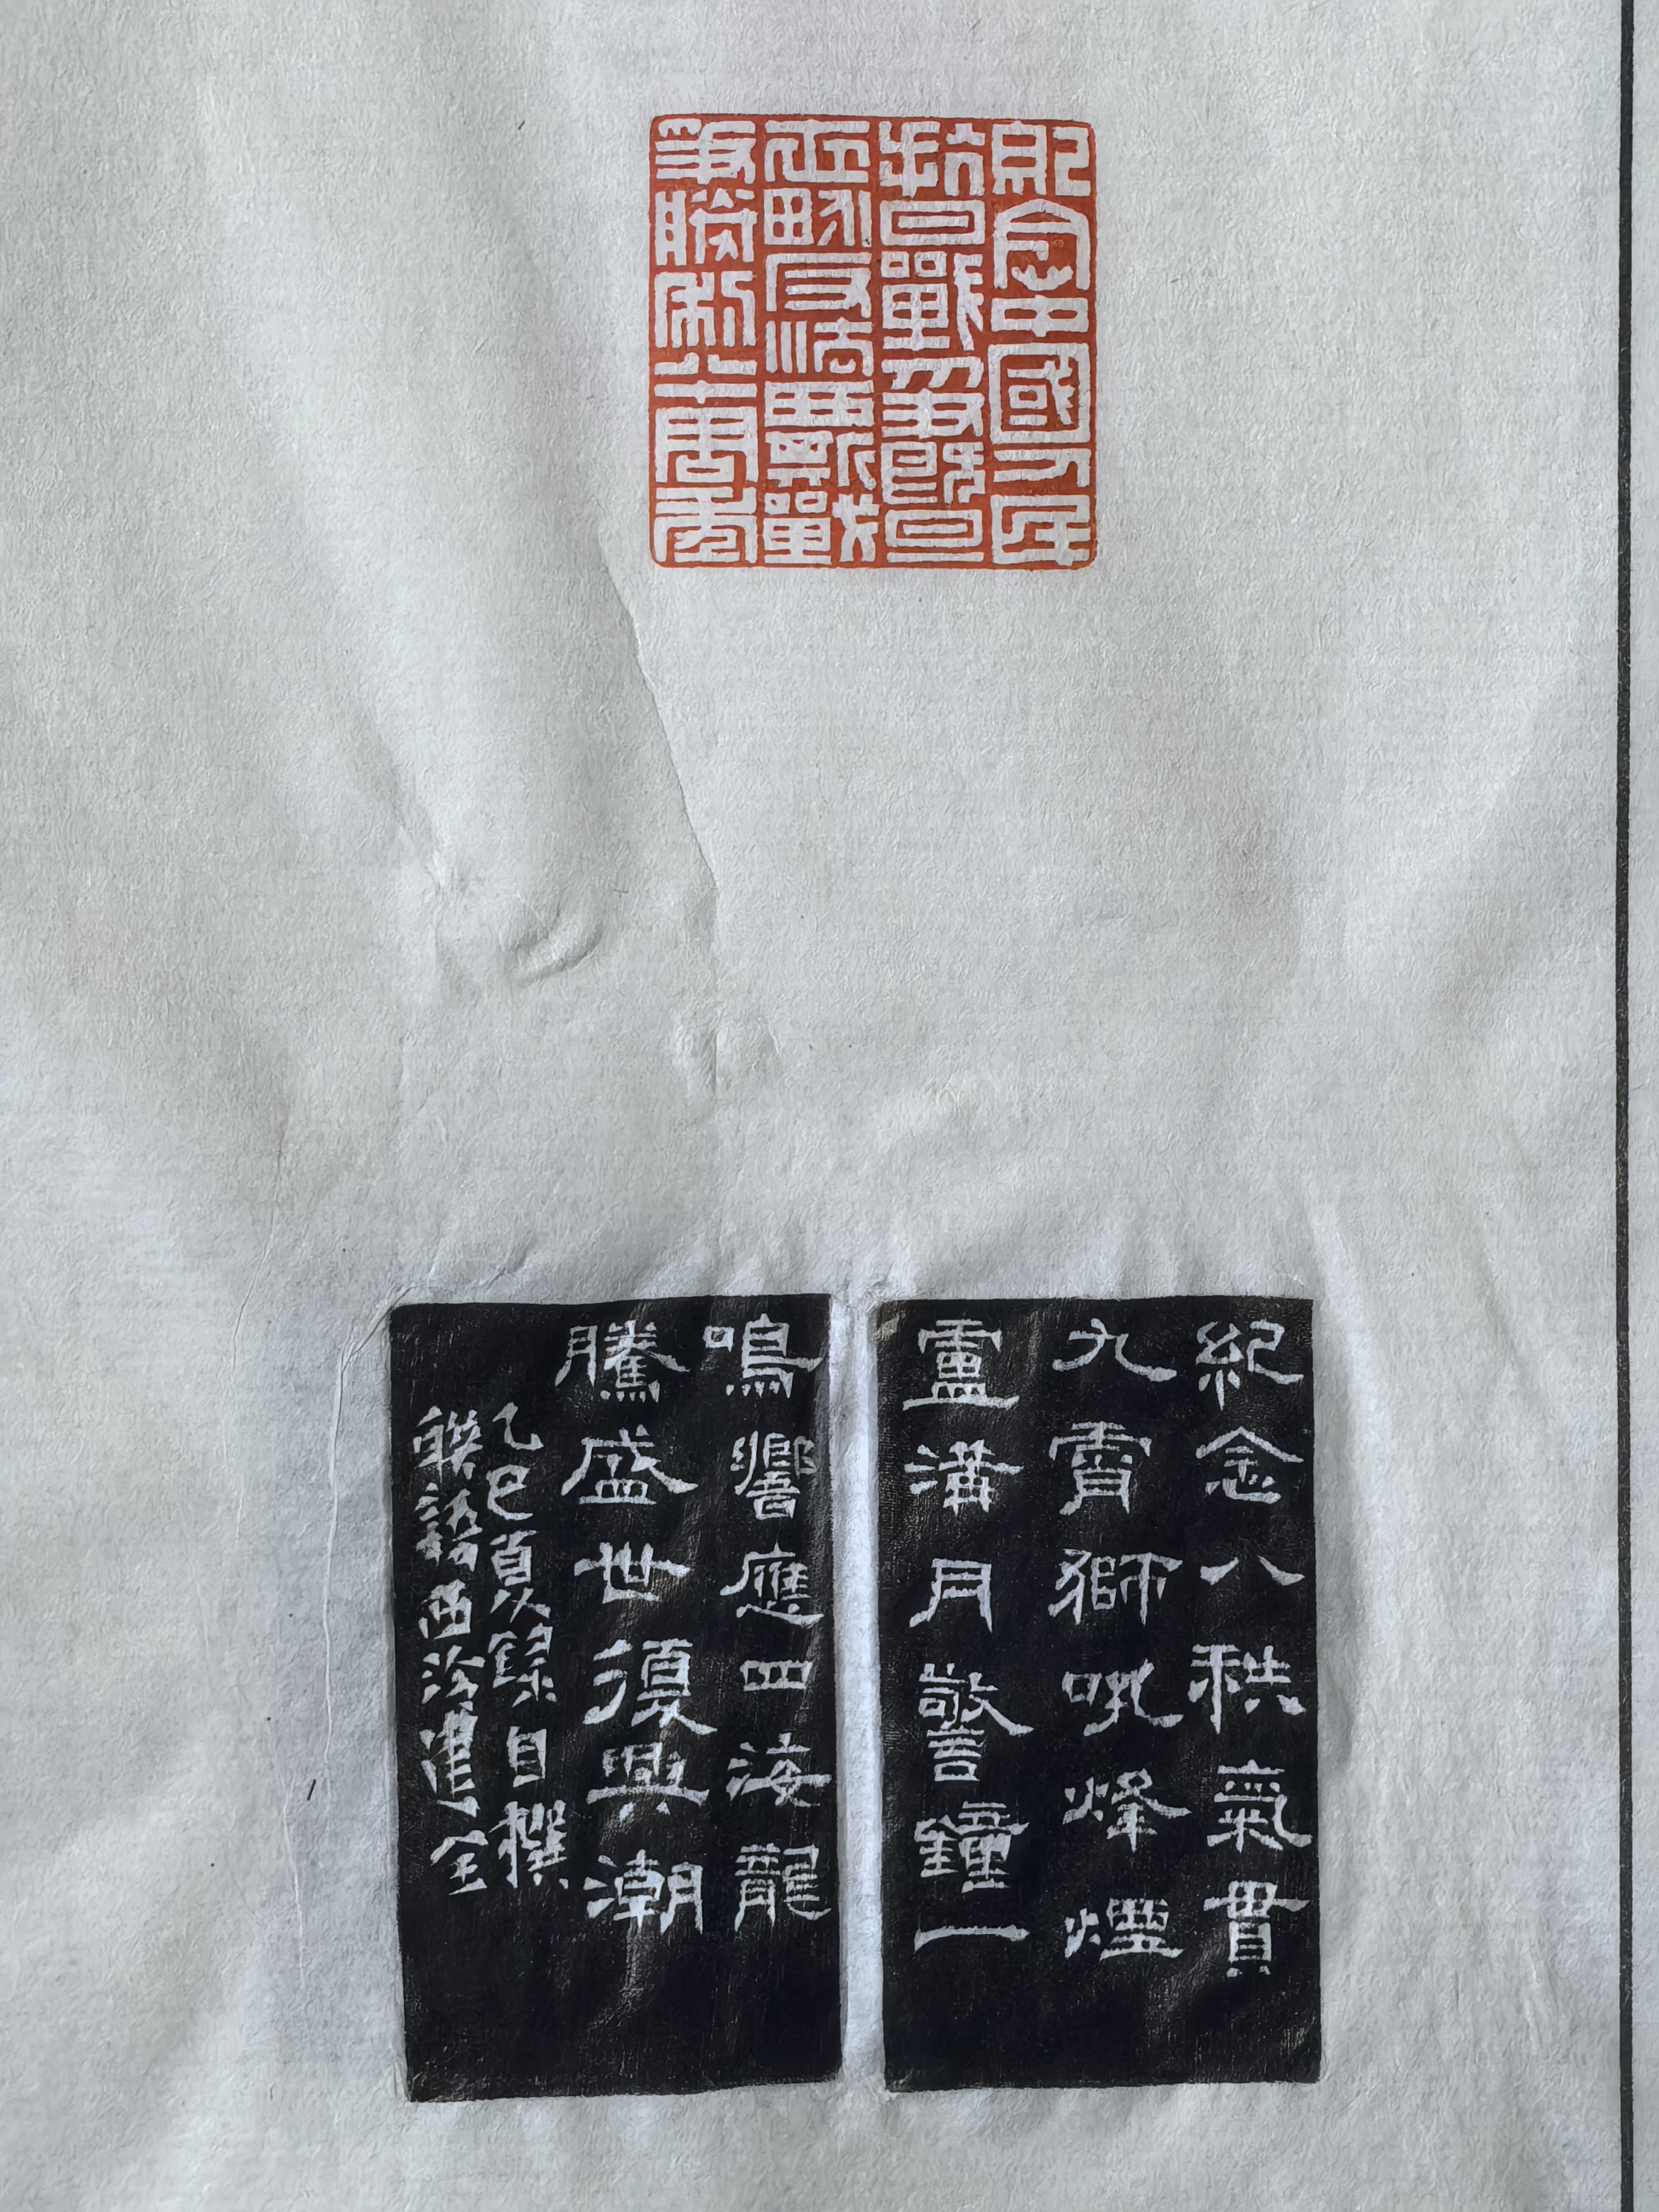 紀念中國人民
抗日戰爭暨
世界反法西斯戰
爭勝利八十周年
紀念八秩氣貫
九霄獅吼烽煙
盧溝月警鐘一
鳴響應四海龍
騰盛世復興潮
乙巳夏錄自撰
聯語西泠建全